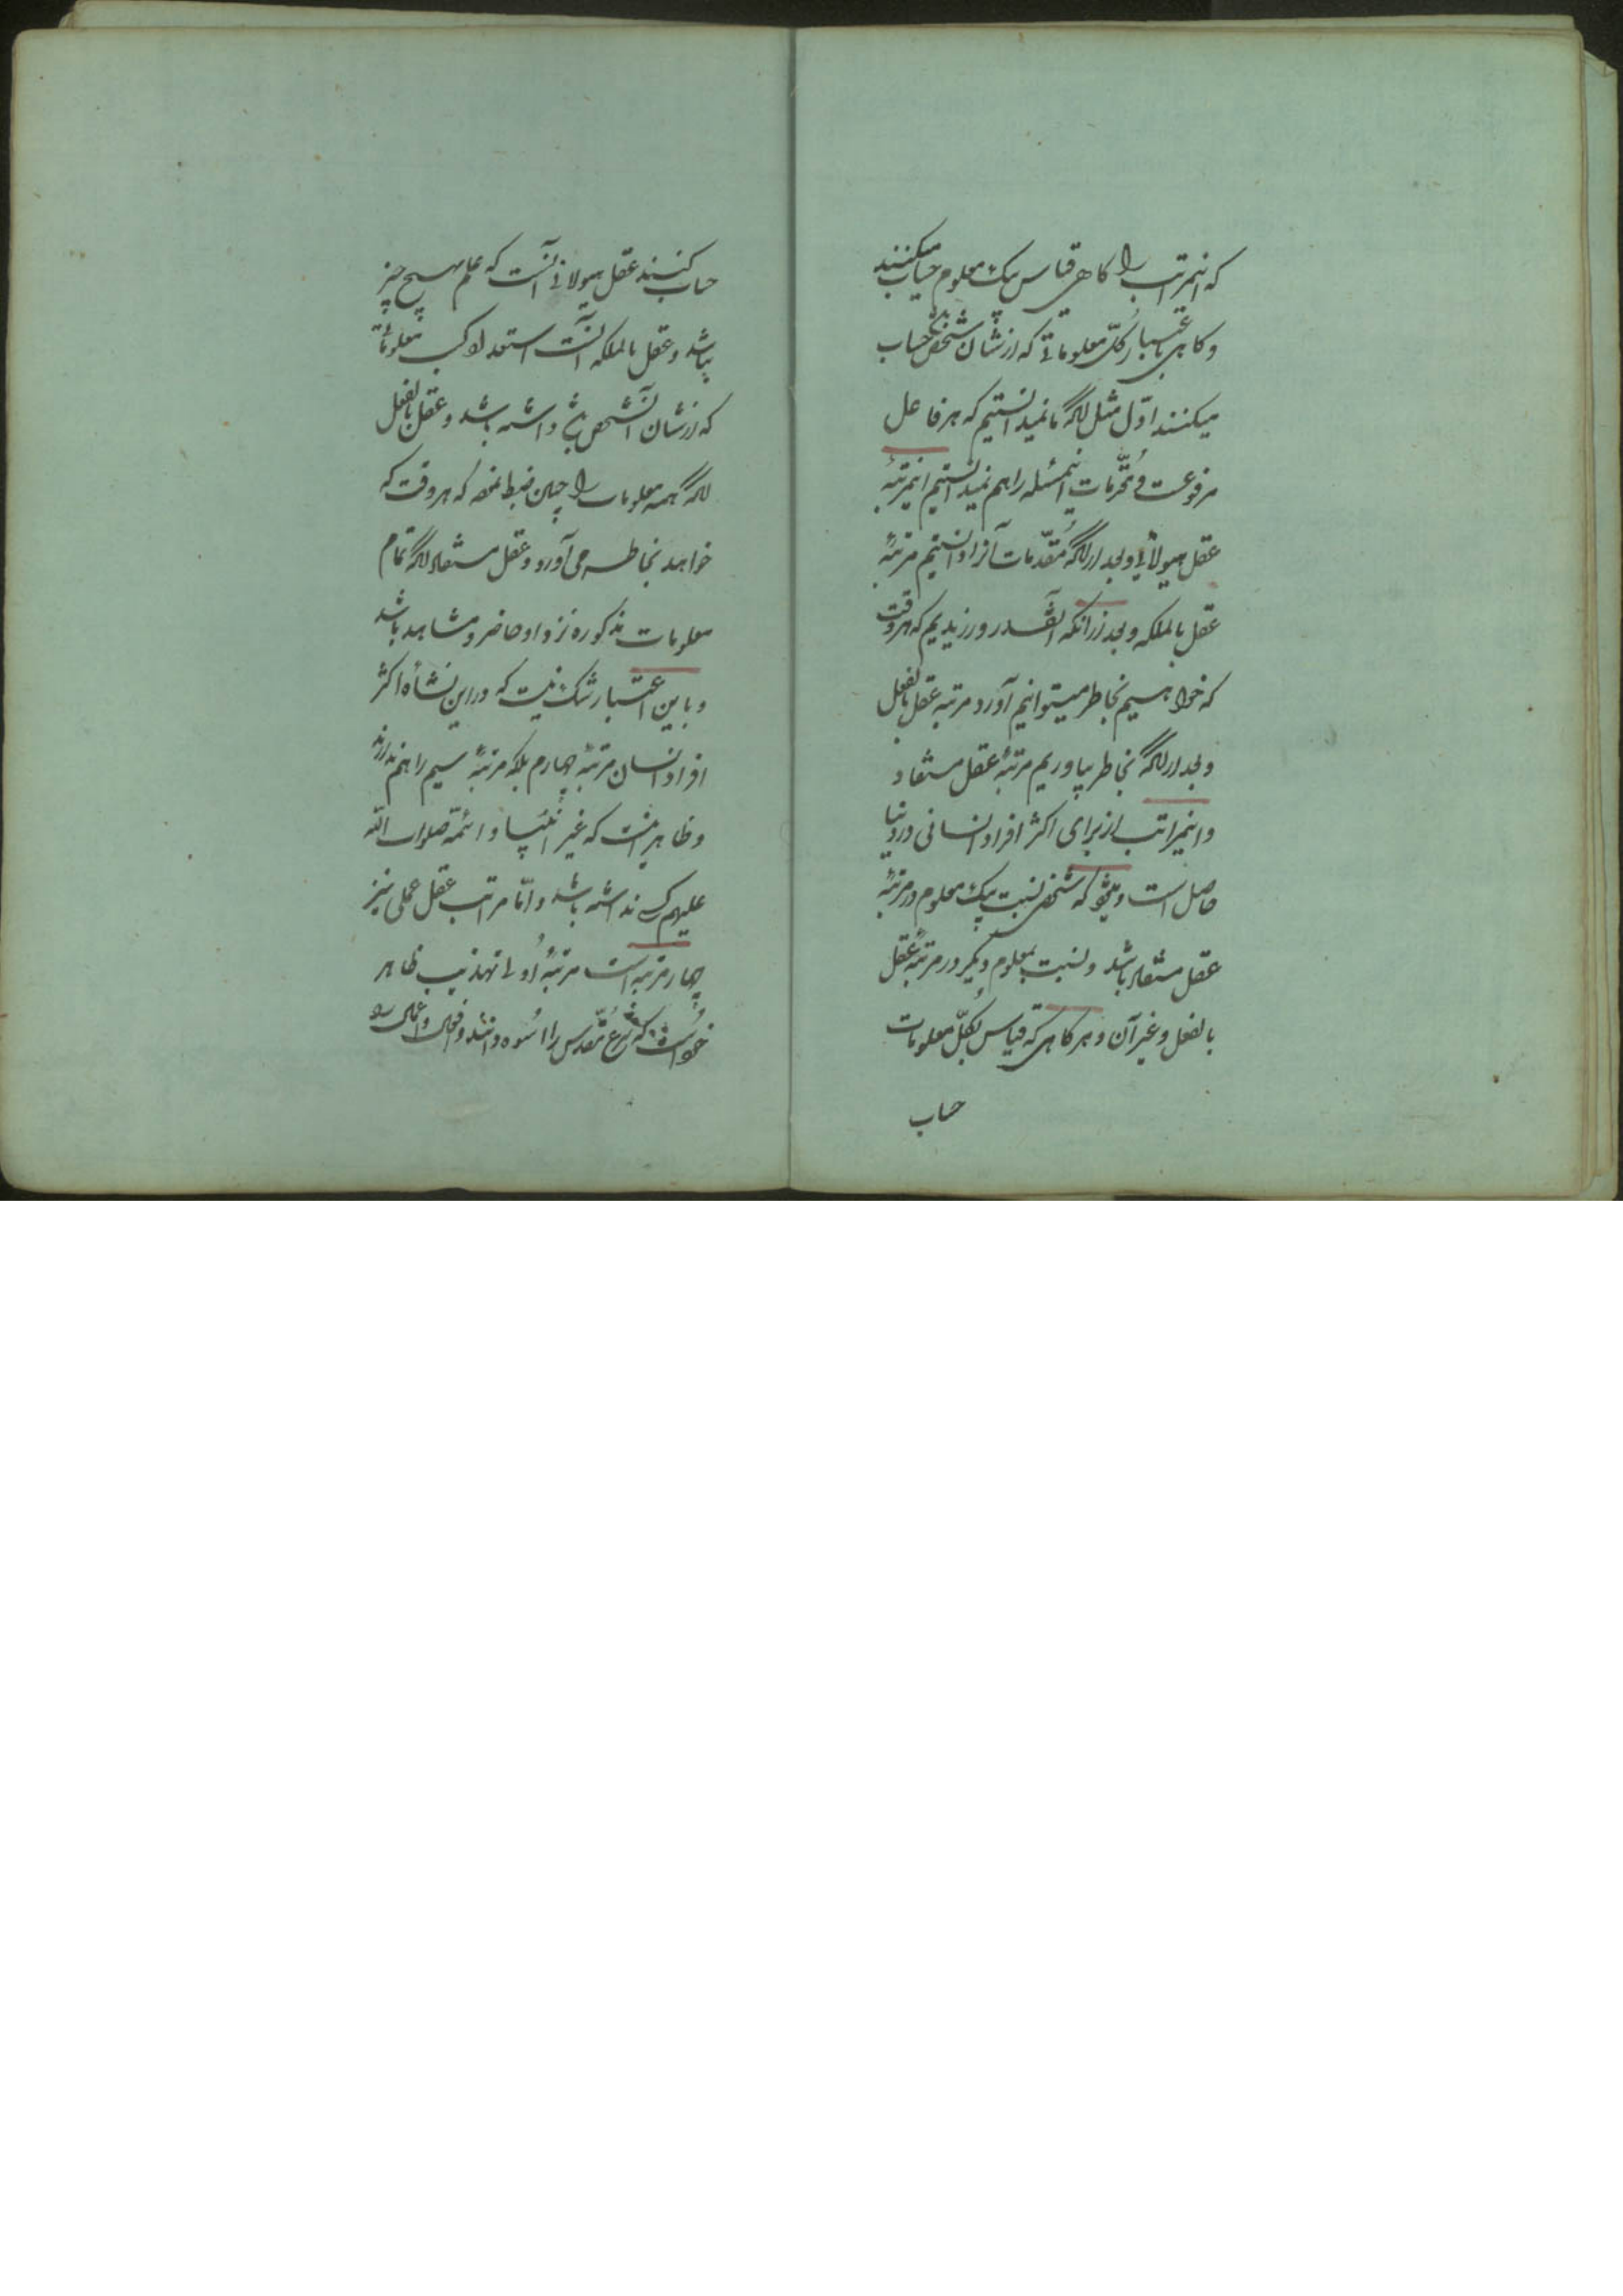 که اینمراتب را کاهی قیاس بیک معلوم حساب میکنند
و کاهی باعتبار کلّ معلوماتی که از شان شخص حساب
میکنند اوّل مثل آنکه ما نمیدانستیم که هر فاعل
مرفوعست و مقدّمات اینمسئله را هم نمیدانستیم اینمرتبهٔ
عقل هیولانی و بعد از آنکه مقدّمات آنرا دانستیم مرتبهٔ
عقل بالملکه و بعد از آنکه آنقدر ورزیدیم که هر وقت
که خواهیم بخاطر میتوانیم آورد مرتبه عقل بالفعل
و بعد از آنکه بخاطر بیاوریم مرتبهٔ عقل مستفاد
و اینمراتب از برای اکثر افراد انسانی در دنیا
حاصل است و میشود که شخص نسبت بیک معلوم در مرتبهٔ
عقل مستفاد باشد و نسبت بمعلوم دیگر در مرتبهٔ عقل
بالفعل و غیر آن و هر کاهی که قیاس بکلّ معلومات
حساب
حساب کنند عقل هیولانی آنست که علم بهیچ چیز
نباشد و عقل بالملکه آنست استعداد کسب معلوماتی
که از شان آنشخص باشد داشته باشد و عقل بالفعل
آنکه همه معلومات را چنان ضبط نموده که هر وقت که
خواهد بخاطر می آورد و عقل مستفاد آنکه تمام
معلومات مذکوره نزد او حاضر و مشاهد باشد
و باین اعتبار شک نیست که در این نشأه اکثر
افراد انسان مرتبهٔ چهارم بلکه مرتبهٔ سیم را هم ندارند
و ظاهر اینست که غیر انبیا و ائمّه صلوات اللّه
علیهم کسی نداشته باشد و امّا مراتب عقل عملی نیز
چهار مرتبه است مرتبهٔ اولی تهذیب ظاهر
که شرع مقدّس را اسوه دانند و